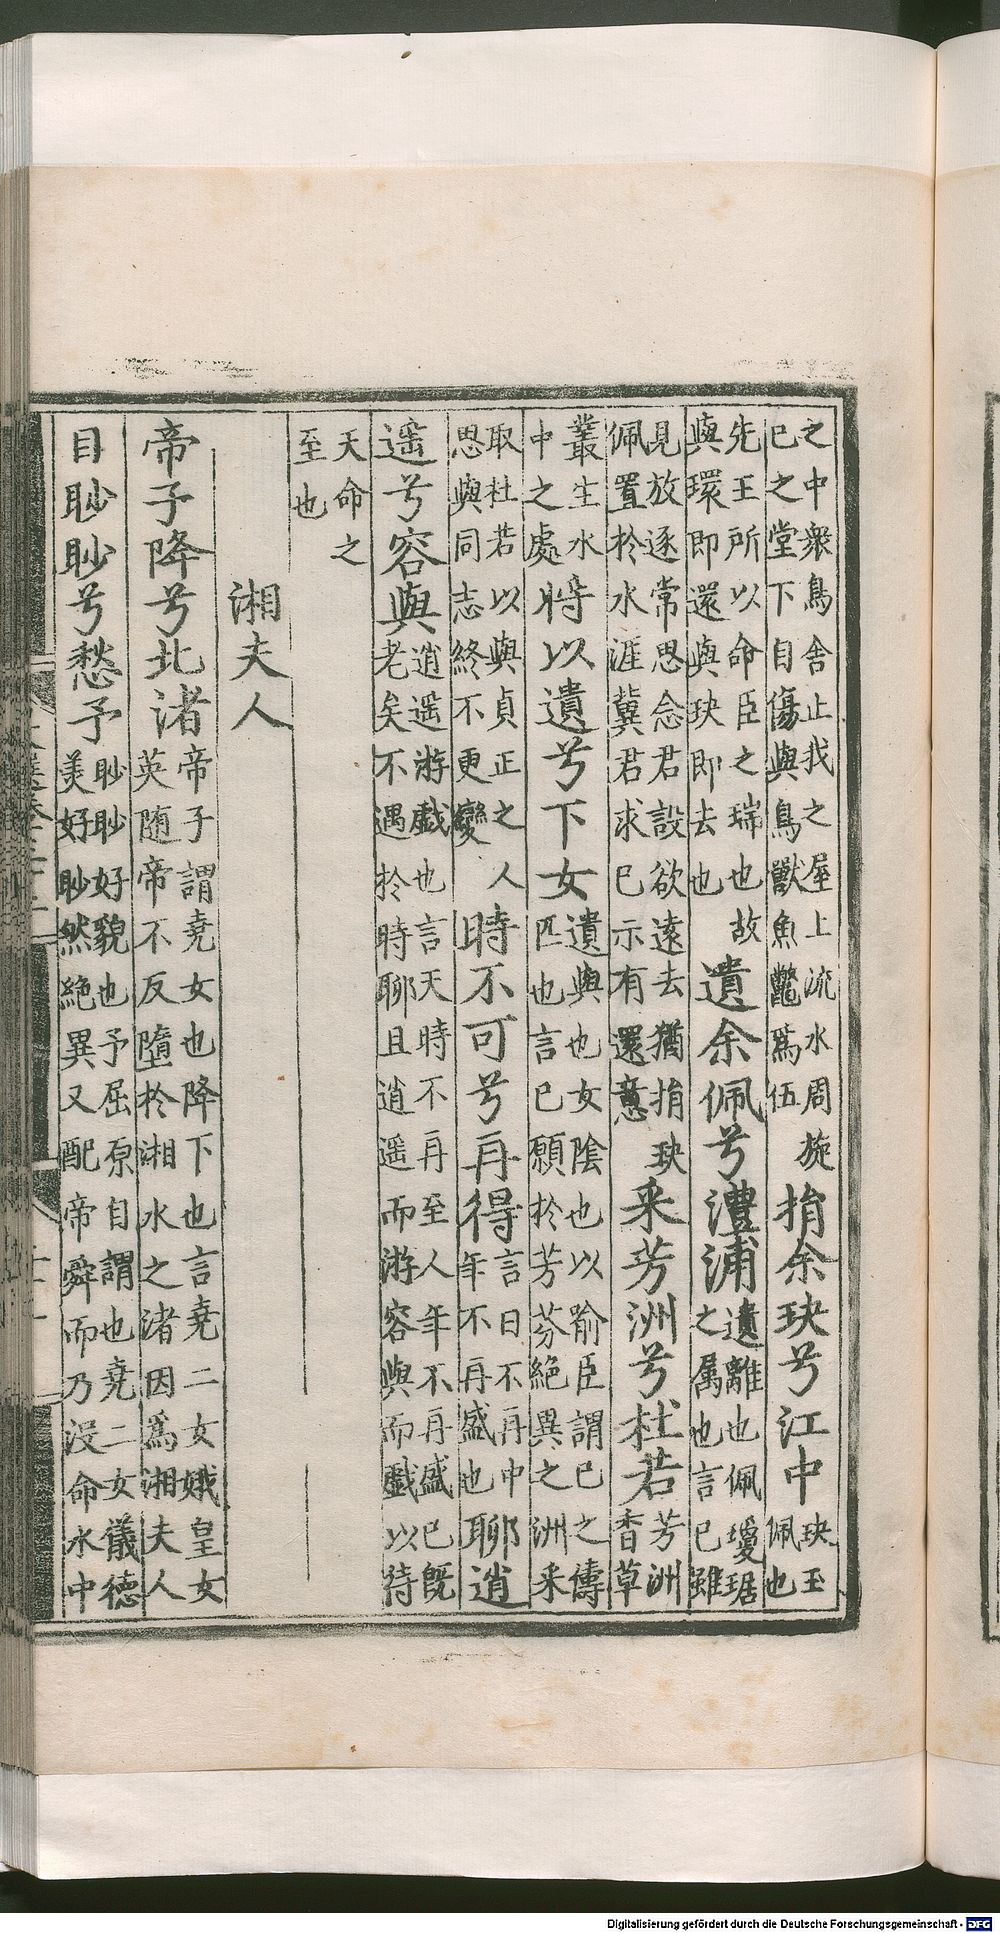 之中衆鳥舍止我之屋上流水周旋
已之堂下自傷與鳥獸魚鼈爲伍
捐余玦兮江中
玦玉
佩也
先王所以命臣之瑞也故
與環即還與玦即去也
遺余佩兮澧浦
遺離也佩瓊琚
之属也言已雖
見放逐常思念君設欲遠去猶捐玦
佩置於水涯冀君求已示有還意
采芳洲兮杜若
芳洲
香草
叢生水
中之處
將以遺兮下女
遺與也女陰也以喻臣謂已之儔
匹也言已願於芳芬絶異之洲采
取杜若以與貞正之人
思與同志終不更變
時不可兮再得
言日不再中
年不再盛也
聊逍
遥兮容與
逍遥游戲也言天時不再至人年不再盛已旣
老矣不遇於時聊且逍遥而游容與而戲以待
天命之
至也
湘夫人
帝子降兮北渚
帝子謂堯女也降下也言堯二女娥皇女
英隨帝不反墮於湘水之渚因爲湘夫人
目眇眇兮愁予
眇眇好貌也予屈原自謂也堯二女儀德
美好眇然絶異又配帝舜而乃没命水中
Digitalisierung gefördert durch die Deutsche Forschungsgemeinschaft - DFG